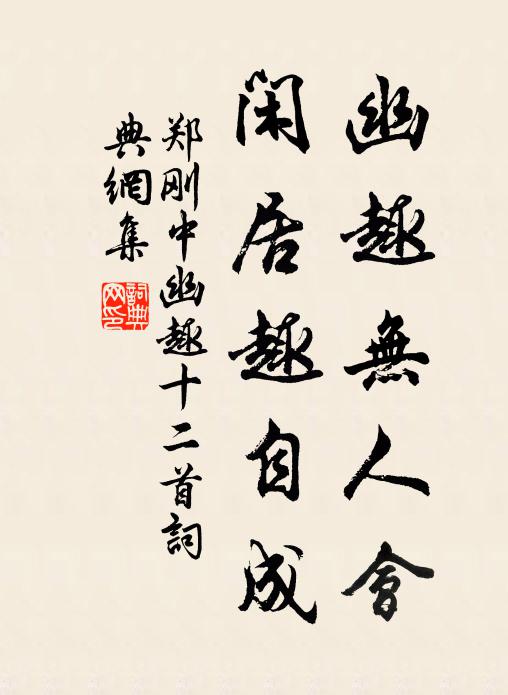 幽趣無人會
閑居趣自成
郑刚中幽趣十二首詞
典網集
詞典
网印